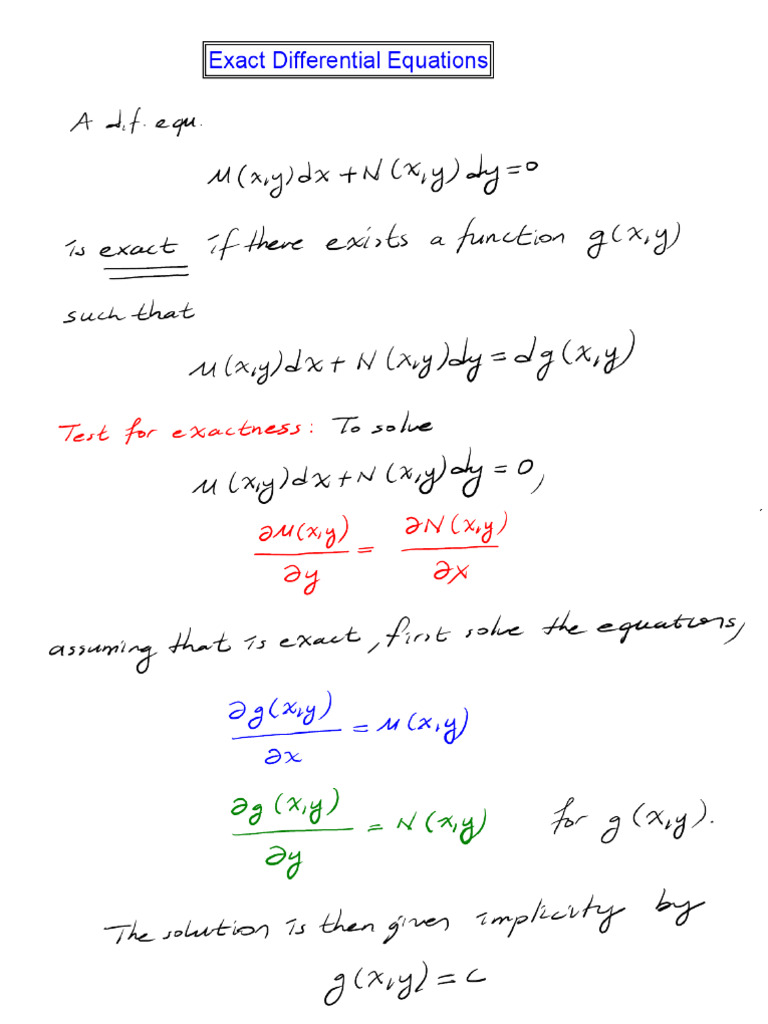 Exact Differential Equations
A dif. equ.
M(x,y)dx + N(x,y)dy = 0
is exact if there exists a function g(x,y)
such that
M(x,y)dx + N(x,y)dy = dg(x,y)
Test for exactness: To solve
M(x,y)dx + N(x,y)dy = 0,
∂M(x,y)/∂y = ∂N(x,y)/∂x
assuming that is exact, first solve the equations,
∂g(x,y)/∂x = M(x,y)
∂g(x,y)/∂y = N(x,y) for g(x,y).
The solution is then given implicity by
g(x,y) = c